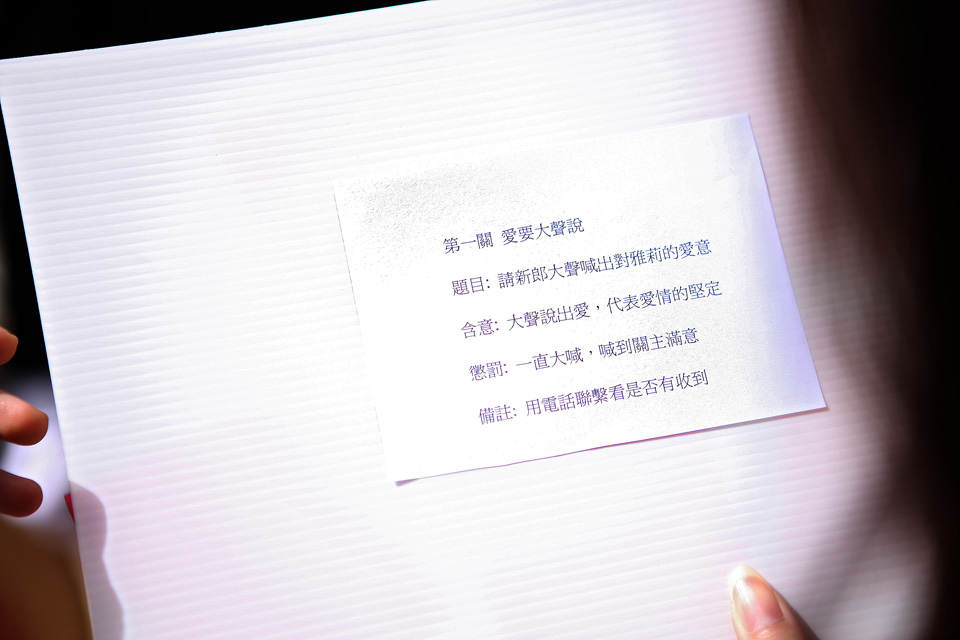 第一關 愛要大聲說
題目: 請新郎大聲喊出對雅莉的愛意
含意: 大聲說出愛，代表愛情的堅定
懲罰: 一直大喊，喊到關主滿意
備註: 用電話聯繫看是否有收到